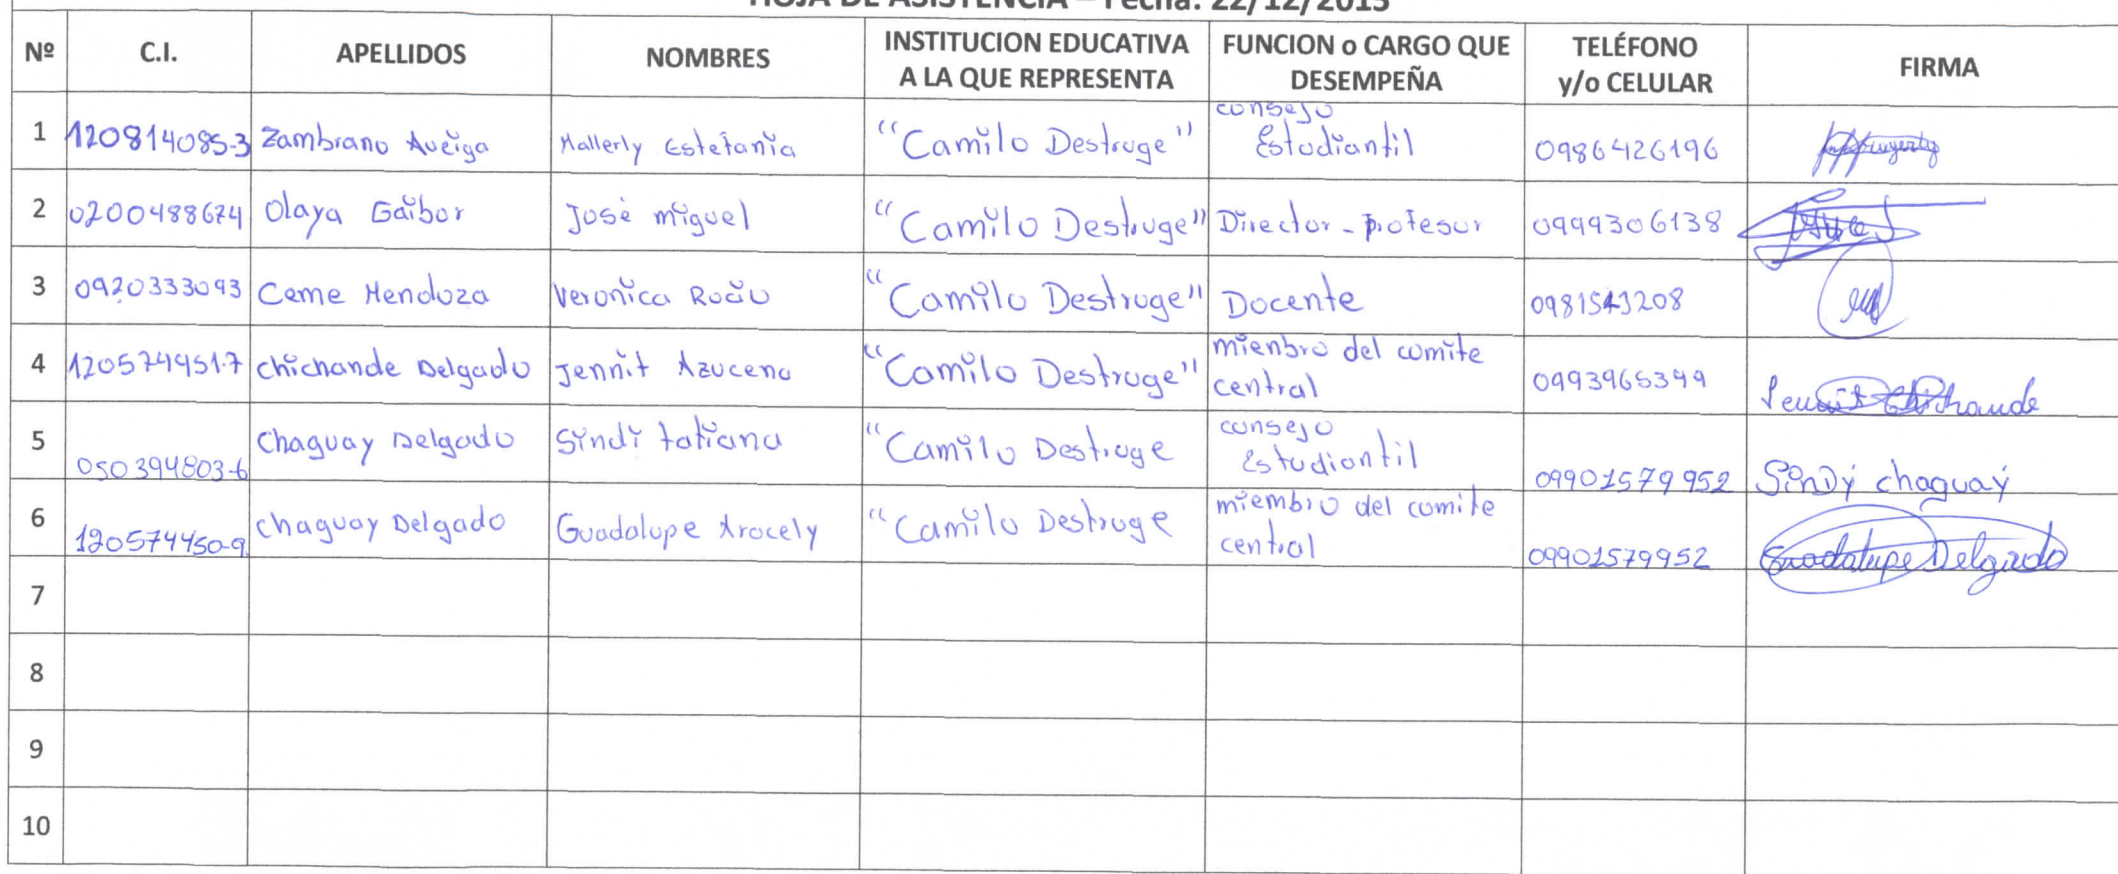 HOJA DE ASISTENCIA – Fecha: 22/12/2015
Nº C.I. APELLIDOS NOMBRES INSTITUCION EDUCATIVA A LA QUE REPRESENTA FUNCION o CARGO QUE DESEMPEÑA TELÉFONO y/o CELULAR FIRMA
1 120814085-3 Zambrano Aveiga Mallerly Estefania "Camilo Destruge" consejo Estudiantil 0986426196
2 0200488674 Olaya Gaibor José miguel "Camilo Destruge" Director - profesor 0999306138
3 0920333093 Ceme Mendoza Veronica Rocio "Camilo Destruge" Docente 0981543208
4 120574951-7 Chichande Delgado Jennit Azucena "Camilo Destruge" mienbro del comite central 0993965399 Jennit Chichande
5 050394803-6 Chaguay Delgado Sindi tatiana "Camilo Destruge consejo Estudiantil 09901579952 Sindy chaguay
6 120574450-9 Chaguay Delgado Guadalupe Arocely "Camilo Destruge miembro del comite central 09901579952 Guadalupe Delgado
7
8
9
10